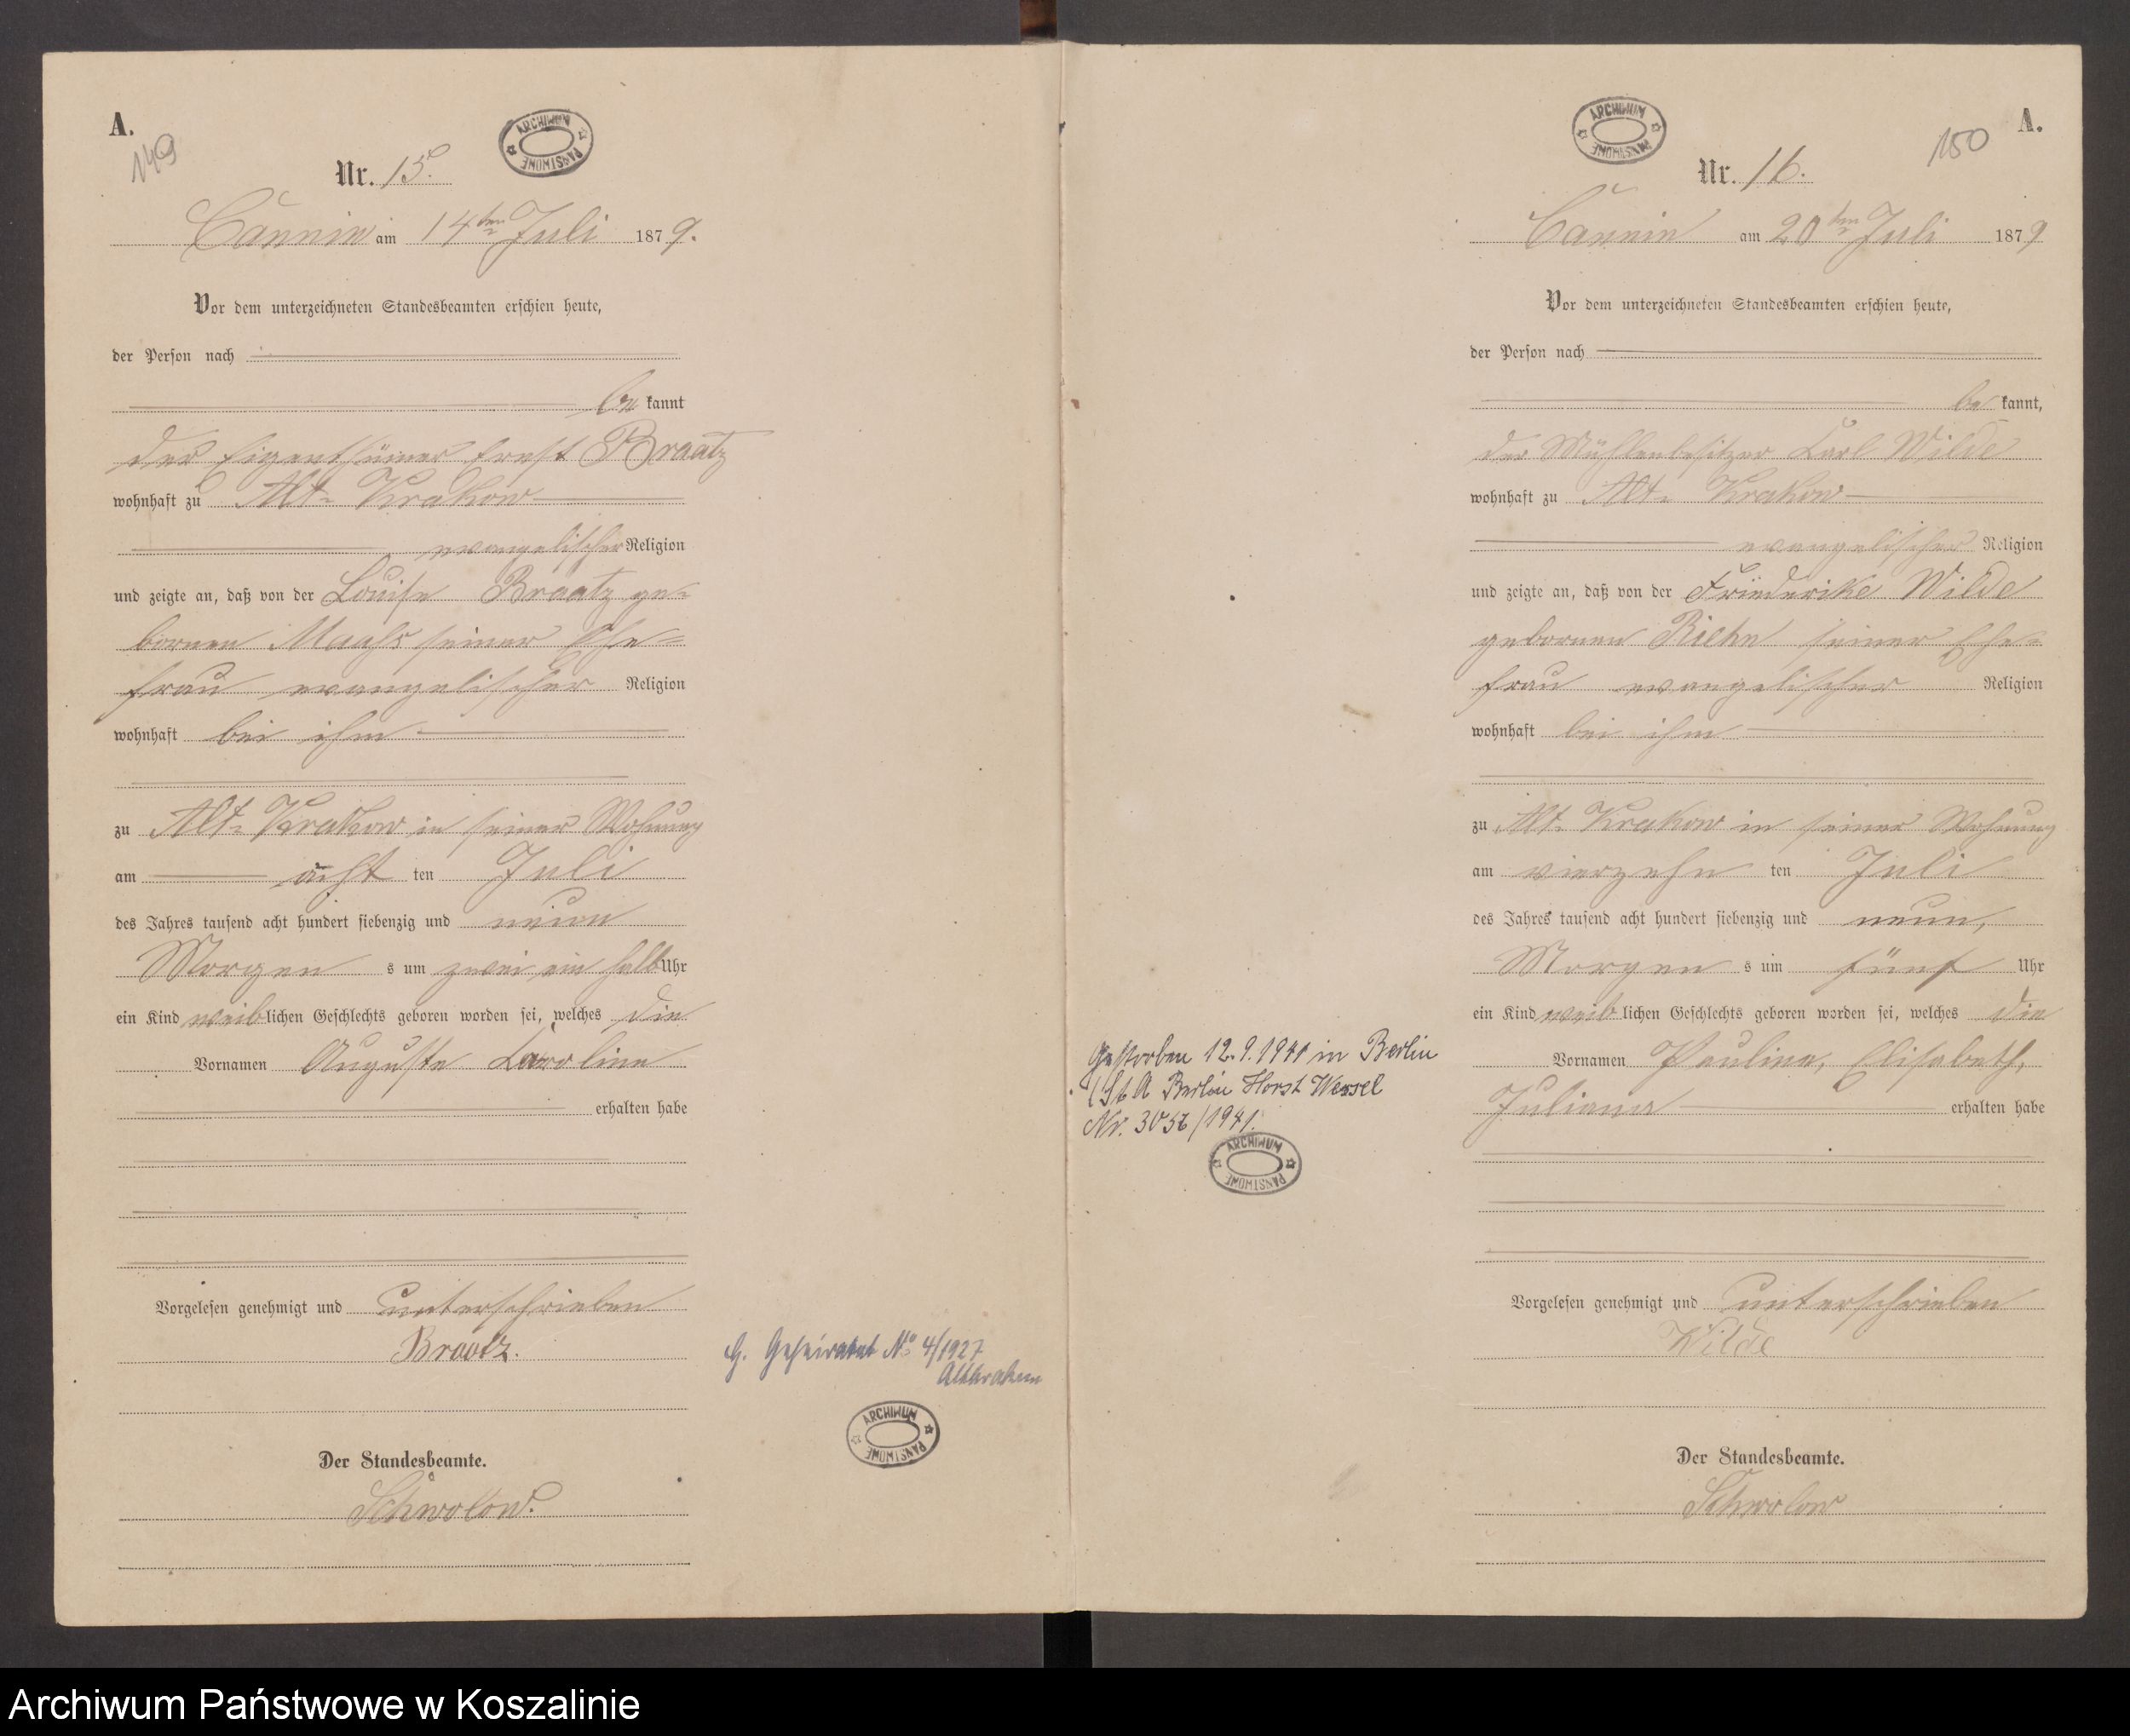 A.
149
ARCHIWUM PAŃSTWOWE
Nr. 15.
Cannin am 14ten Juli 1879.
Vor dem unterzeichneten Standesbeamten erschien heute,
der Person nach
be kannt
der Eigenthümer Ernst Braatz
wohnhaft zu Alt-Krakow
evangelischer Religion
und zeigte an, daß von der Louise Braatz ge-
bornen Maahs seiner Ehe-
frau evangelischer Religion
wohnhaft bei ihm
zu Alt-Krakow in seiner Wohnung
am acht ten Juli
des Jahres tausend acht hundert siebenzig und neun
Morgen s um zwei ein halb Uhr
ein Kind weib lichen Geschlechts geboren worden sei, welches die
Vornamen Auguste Caroline
erhalten habe
Vorgelesen genehmigt und unterschrieben
Braatz.
G. Geheiratet No 4/1927
Altkrakow
ARCHIWUM PAŃSTWOWE
Der Standesbeamte.
Schwolow.
A.
150
ARCHIWUM PAŃSTWOWE
Nr. 16.
Cannin am 20ten Juli 1879
Vor dem unterzeichneten Standesbeamten erschien heute,
der Person nach
be kannt,
der Mühlenbesitzer Carl Wilde
wohnhaft zu Alt-Krakow
evangelischer Religion
und zeigte an, daß von der Friederike Wilde
gebornen seiner Ehe-
frau evangelischer Religion
wohnhaft bei ihm
zu Alt-Krakow in seiner Wohnung
am vierzehn ten Juli
des Jahres tausend acht hundert siebenzig und neun,
Morgen s um fünf Uhr
ein Kind weib lichen Geschlechts geboren worden sei, welches die
Vornamen Pauline, Elisabeth,
Juliane erhalten habe
Gestorben 12.9.1941 in Berlin
(St A Berlin Horst Wessel
Nr. /1941.
ARCHIWUM PAŃSTWOWE
Vorgelesen genehmigt und unterschrieben
Wilde
Der Standesbeamte.
Schwolow
Archiwum Państwowe w Koszalinie